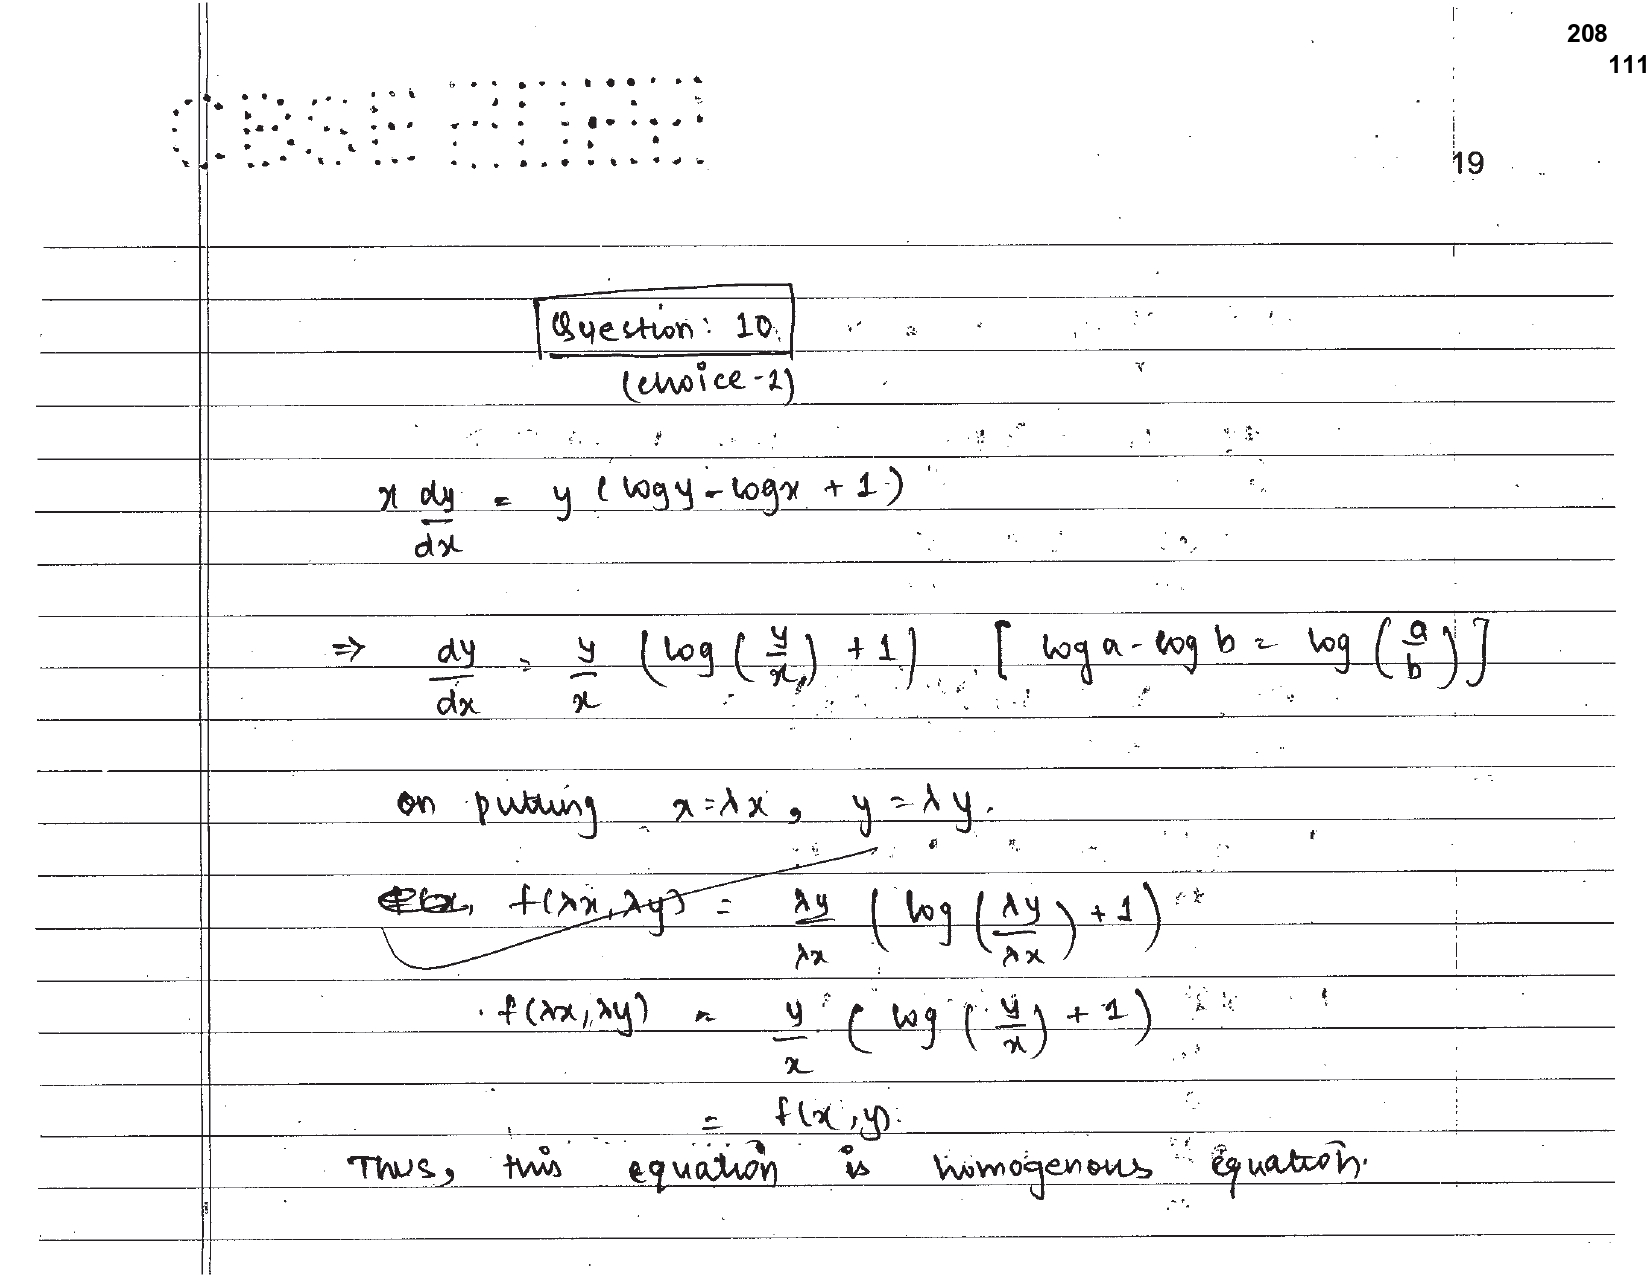 208
111
CBSE
19
Question: 10.
(choice-2)
x dy/dx = y (log y - log x + 1)
⇒ dy/dx = y/x (log (y/x) + 1) [ log a - log b = log (a/b) ]
on putting x = λx, y = λy.
f(λx, λy) = λy/λx ( log (λy/λx) + 1)
f(λx, λy) = y/x ( log (y/x) + 1)
= f(x, y).
Thus, this equation is homogenous equation.